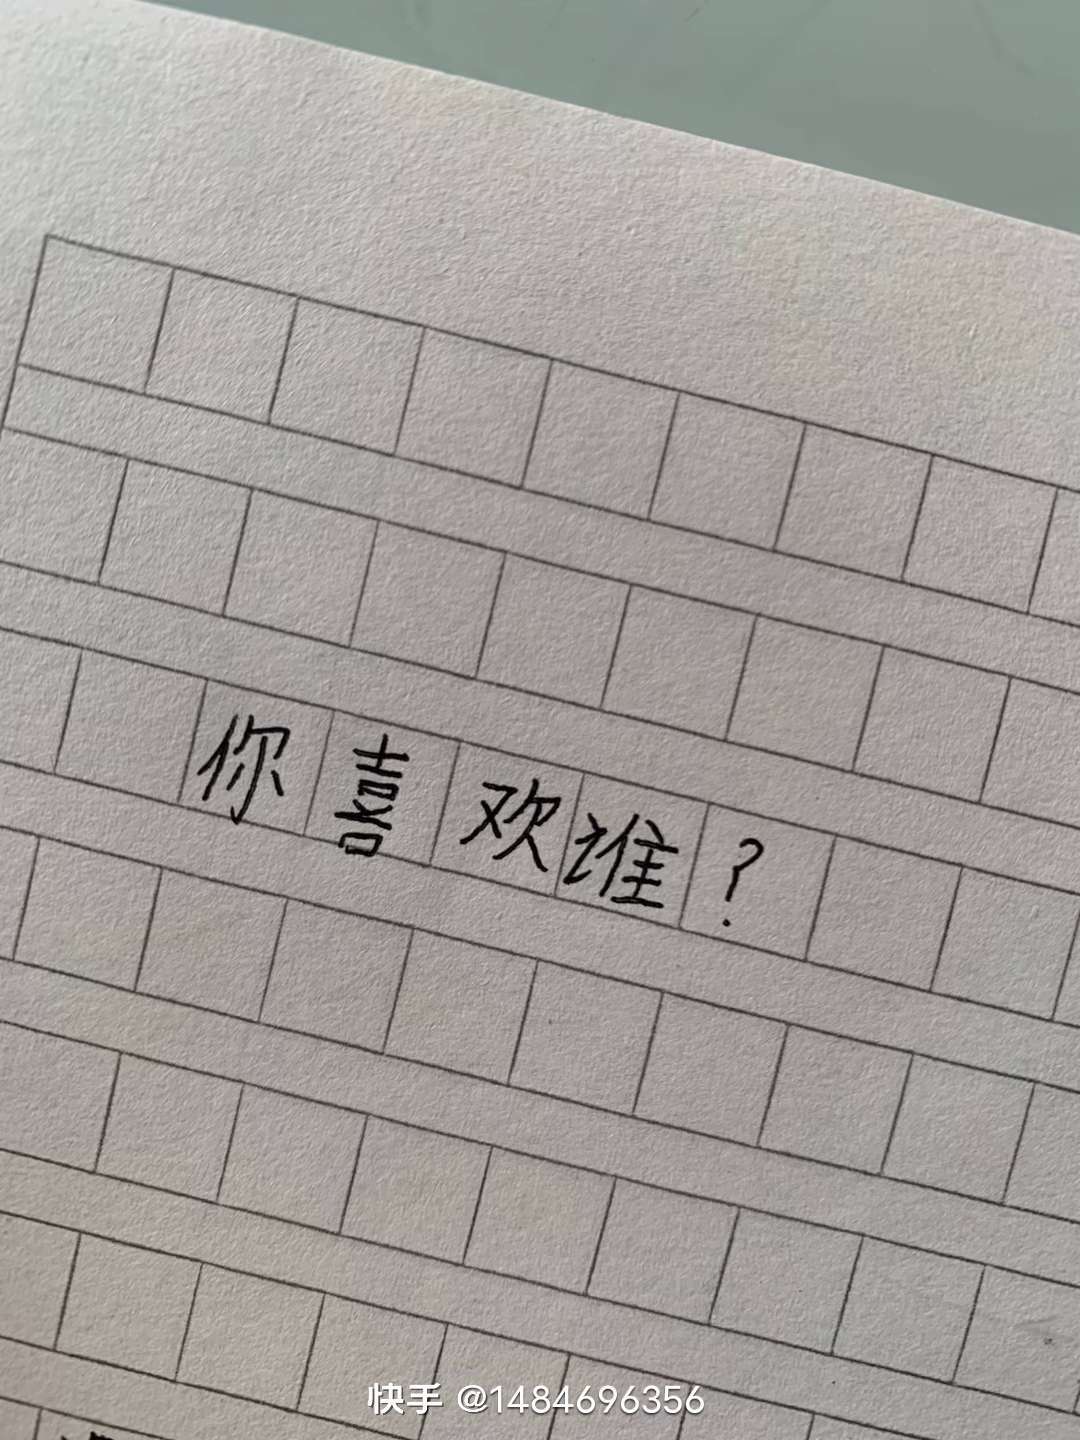 你喜欢谁？
快手 @1484696356